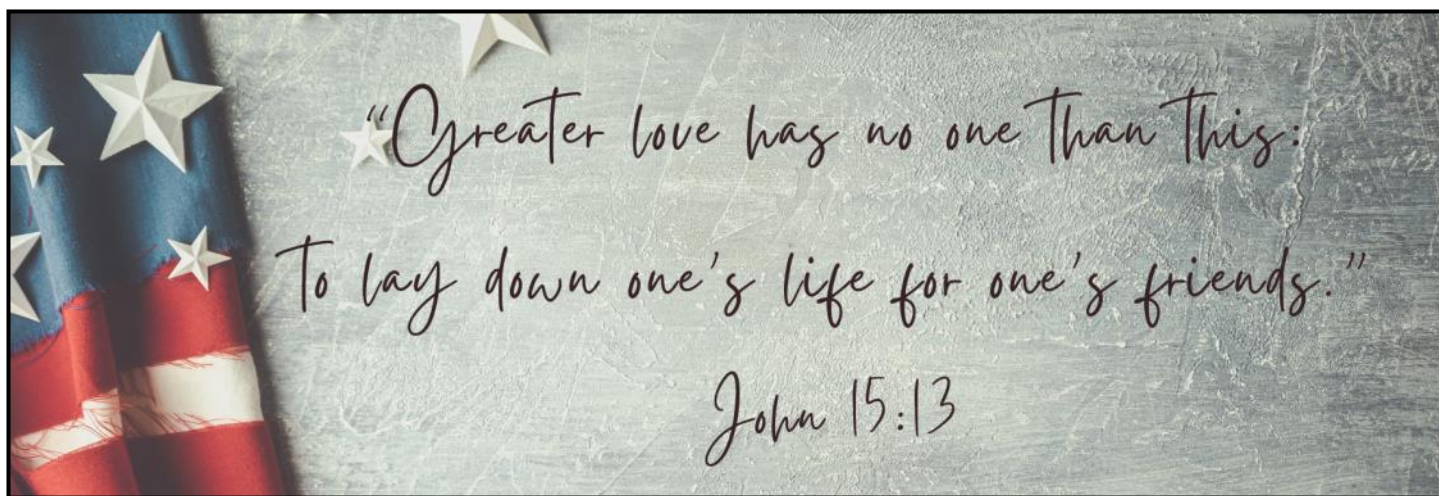 “Greater love has no one than this:
To lay down one’s life for one’s friends.”
John 15:13